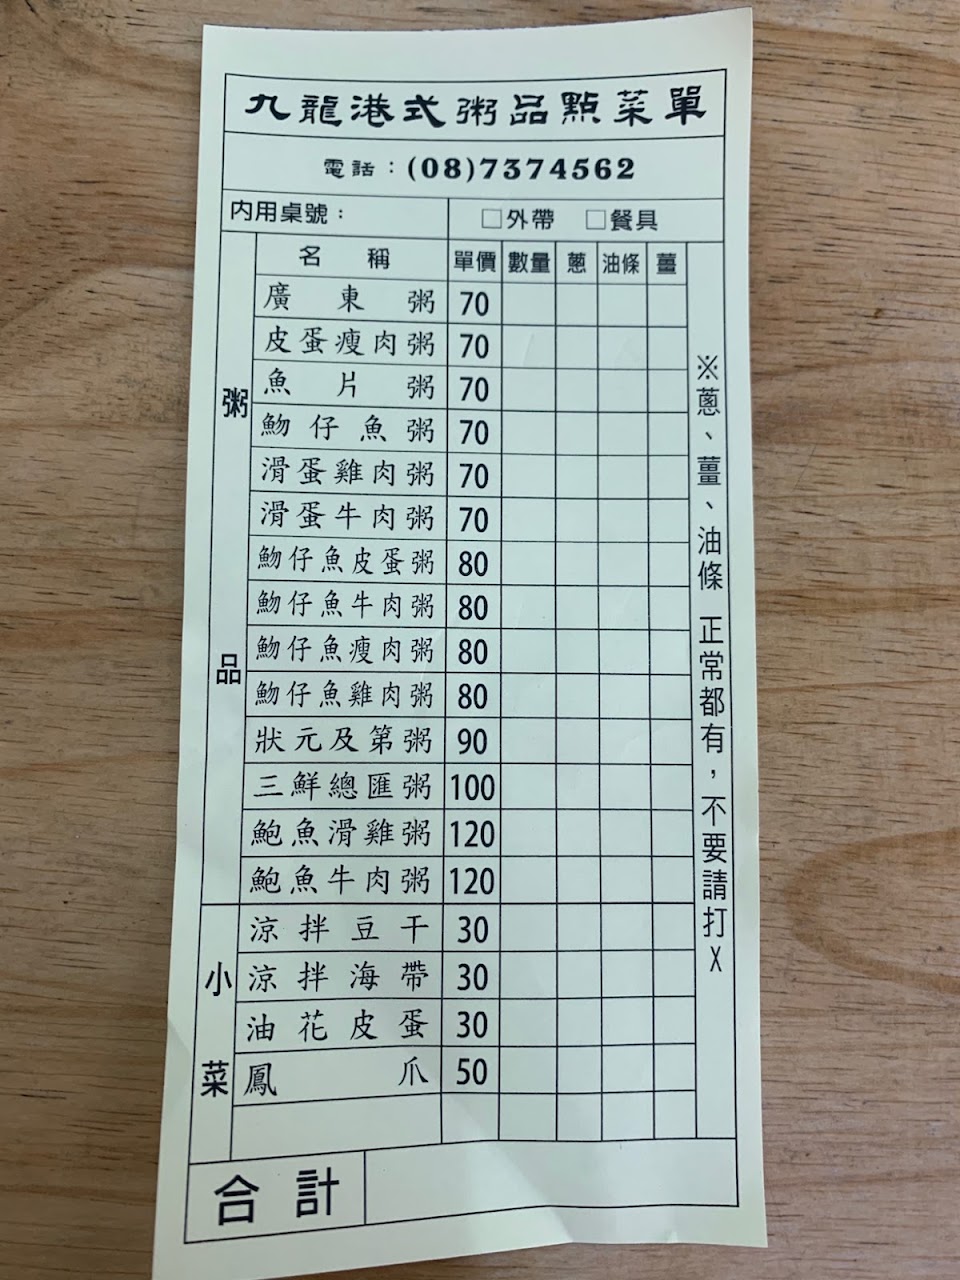 九龍港式粥品點菜單
電話：(08)7374562
內用桌號： □外帶 □餐具
名稱 單價 數量 蔥 油條 薑
粥品
廣東粥 70
皮蛋瘦肉粥 70
魚片粥 70
魩仔魚粥 70
滑蛋雞肉粥 70
滑蛋牛肉粥 70
魩仔魚皮蛋粥 80
魩仔魚牛肉粥 80
魩仔魚瘦肉粥 80
魩仔魚雞肉粥 80
狀元及第粥 90
三鮮總匯粥 100
鮑魚滑雞粥 120
鮑魚牛肉粥 120
小菜
涼拌豆干 30
涼拌海帶 30
油花皮蛋 30
鳳爪 50
※蔥、薑、油條 正常都有，不要請打X
合計